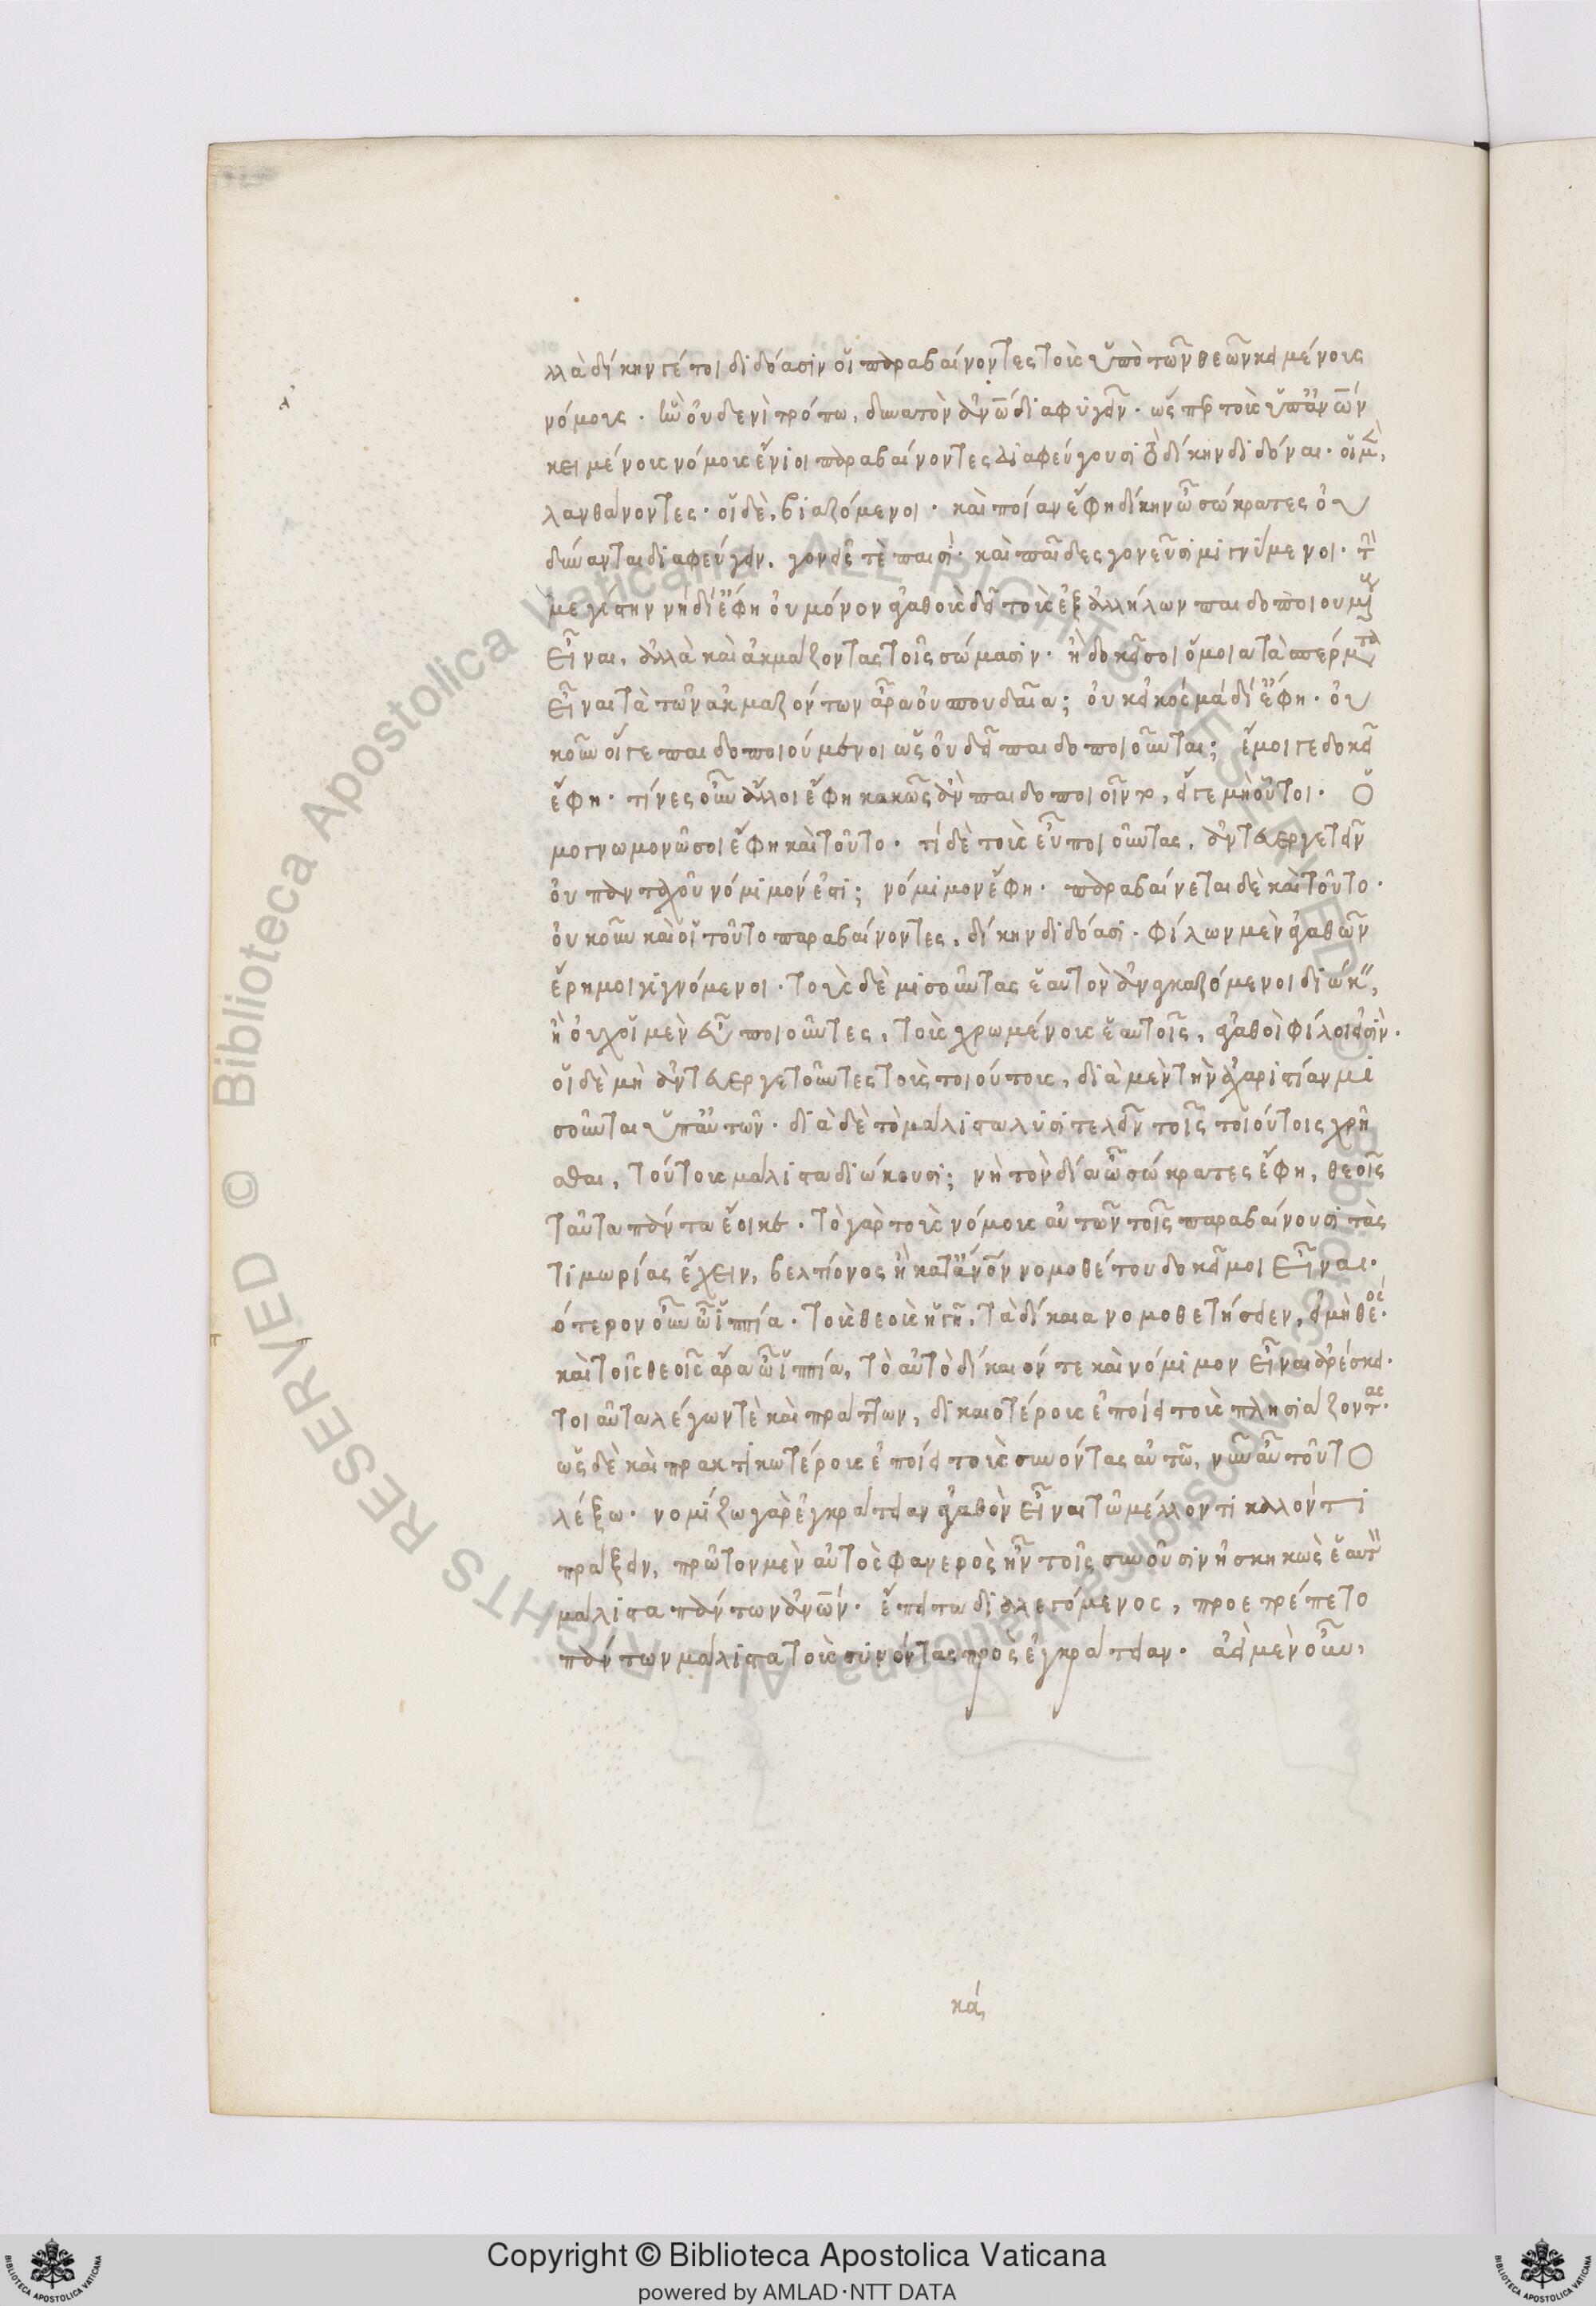 λλὰ δίκην γέ τοι διδόασιν οἱ παραβαίνοντες τοὺς ὑπὸ τῶν θεῶν κειμένους
νόμους. ἣν οὐδενὶ τρόπω, δυνατὸν ἀνω̅ διαφυγεῖν. ὥσπερ τοὺς ὑπ' ἀνω̅ν
κειμένους νόμους ἔνιοι παραβαίνοντες διαφεύγουσι τὸ δίκην διδόναι. οἱ μὲν,
λανθάνοντες. οἱ δὲ, βιαζόμενοι. καὶ ποίαν ἔφη δίκην ὦ σώκρατες οὐ
δύνανται διαφεύγειν, γονεῖς τὲ παισὶ. καὶ παῖδες γονεῦσι μιγνύμενοι. τὴν
μεγίστην νὴ δί' ἔφη
οὐ μόνον ἀγαθοὺς δεῖ τοὺς ἐξ ἀλλήλων παιδοποιουμένους
εἶναι, ἀλλὰ καὶ ἀκμάζοντας τοῖς σώμασιν. ἢ δοκεῖ σοι ὅμοια τὰ σπέρματα
εἶναι τὰ τῶν ἀκμαζόντων
οὐκ εἰκός μὰ δί' ἔφη. οὐ
κοῦν οἵγε παιδοποιούμενοι ὡς οὐ δεῖ παιδοποιοῦνται; ἔμοιγε δοκεῖ
ἔφη. τίνες οὖν ἄλλοι ἔφη κακῶς ἂν παιδοποιοῖντο, εἴγε μὴ οὗτοι. ὁ
μογνωμονῶ σοι ἔφη καὶ τοῦτο. τί δὲ τοὺς εὖ ποιοῦντας, ἀντευεργετεῖν
οὐ πανταχοῦ νόμιμόν ἐστι; νόμιμον ἔφη. παραβαίνεται δὲ καὶ τοῦτο.
οὐκοῦν καὶ οἱ τοῦτο παραβαίνοντες, δίκην διδόασι. φίλων μὲν ἀγαθῶν
ἔρημοι γιγνόμενοι. τοὺς δὲ μισοῦντας ἑαυτοὺς ἀναγκαζόμενοι διώκειν,
ἢ οὐχ οἱ μὲν εὖ ποιοῦντες, τοὺς χρωμένους ἑαυτοῖς, ἀγαθοὶ φίλοι εἰσὶν.
οἱ δὲ μὴ ἀντευεργετοῦντες τοὺς τοιούτους, διὰ μὲν τὴν ἀχαριστίαν μι
σοῦνται ὑπ' αὐτῶν. διὰ δὲ τὸ μάλιστα λυσιτελεῖν τοῖς τοιούτοις χρῆ
σθαι, τούτους μάλιστα διώκουσι; νὴ τὸν δία ὦ σώκρατες ἔφη, θεοῖς
ταῦτα πάντα ἔοικε. τὸ γὰρ τοὺς νόμους αὐτοὺς τοῖς παραβαίνουσι τὰς
τιμωρίας ἔχειν, βελτίονος ἢ κατ' ἄνο̅ν νομοθέτου δοκεῖ μοι εἶναι.
ότερον οὖν ὦ ἱππία. τοὺς θεοὺς ἡγῆ, τὰ δίκαια νομοθετήσειεν, εἰ μὴ θεός.
καὶ τοῖς θεοῖς ἄρα ὦ ἱππία, τὸ αὐτὸ δίκαιόν τε καὶ νόμιμον εἶναι ἀρέσκει.
τοιαῦτα λέγων τὲ καὶ πράττων, δικαιοτέρους ἐποίει τοὺς πλησιάζοντας.
ὡς δὲ καὶ πρακτικωτέρους ἐποίει τοὺς συνόντας αὐτῶ, νῦν αὖ τοῦτο
λέξω. νομίζω γὰρ ἐγκράτειαν ἀγαθὸν εἶναι τῶ μέλλοντι καλόν τι
πράξειν, πρῶτον μὲν αὐτὸς φανερὸς ἦν τοῖς συνοῦσιν ἠσκηκὼς ἑαυτὸν
μάλιστα πάντων ἀνω̅ν. ἔπειτα διαλεγόμενος, προετρέπετο
πάντων μάλιστα τοὺς συνόντας πρὸς ἐγκράτειαν. ἀεὶ μὲν οὖν,
κά,
Copyright © Biblioteca Apostolica Vaticana
powered by AMLAD·NTT DATA